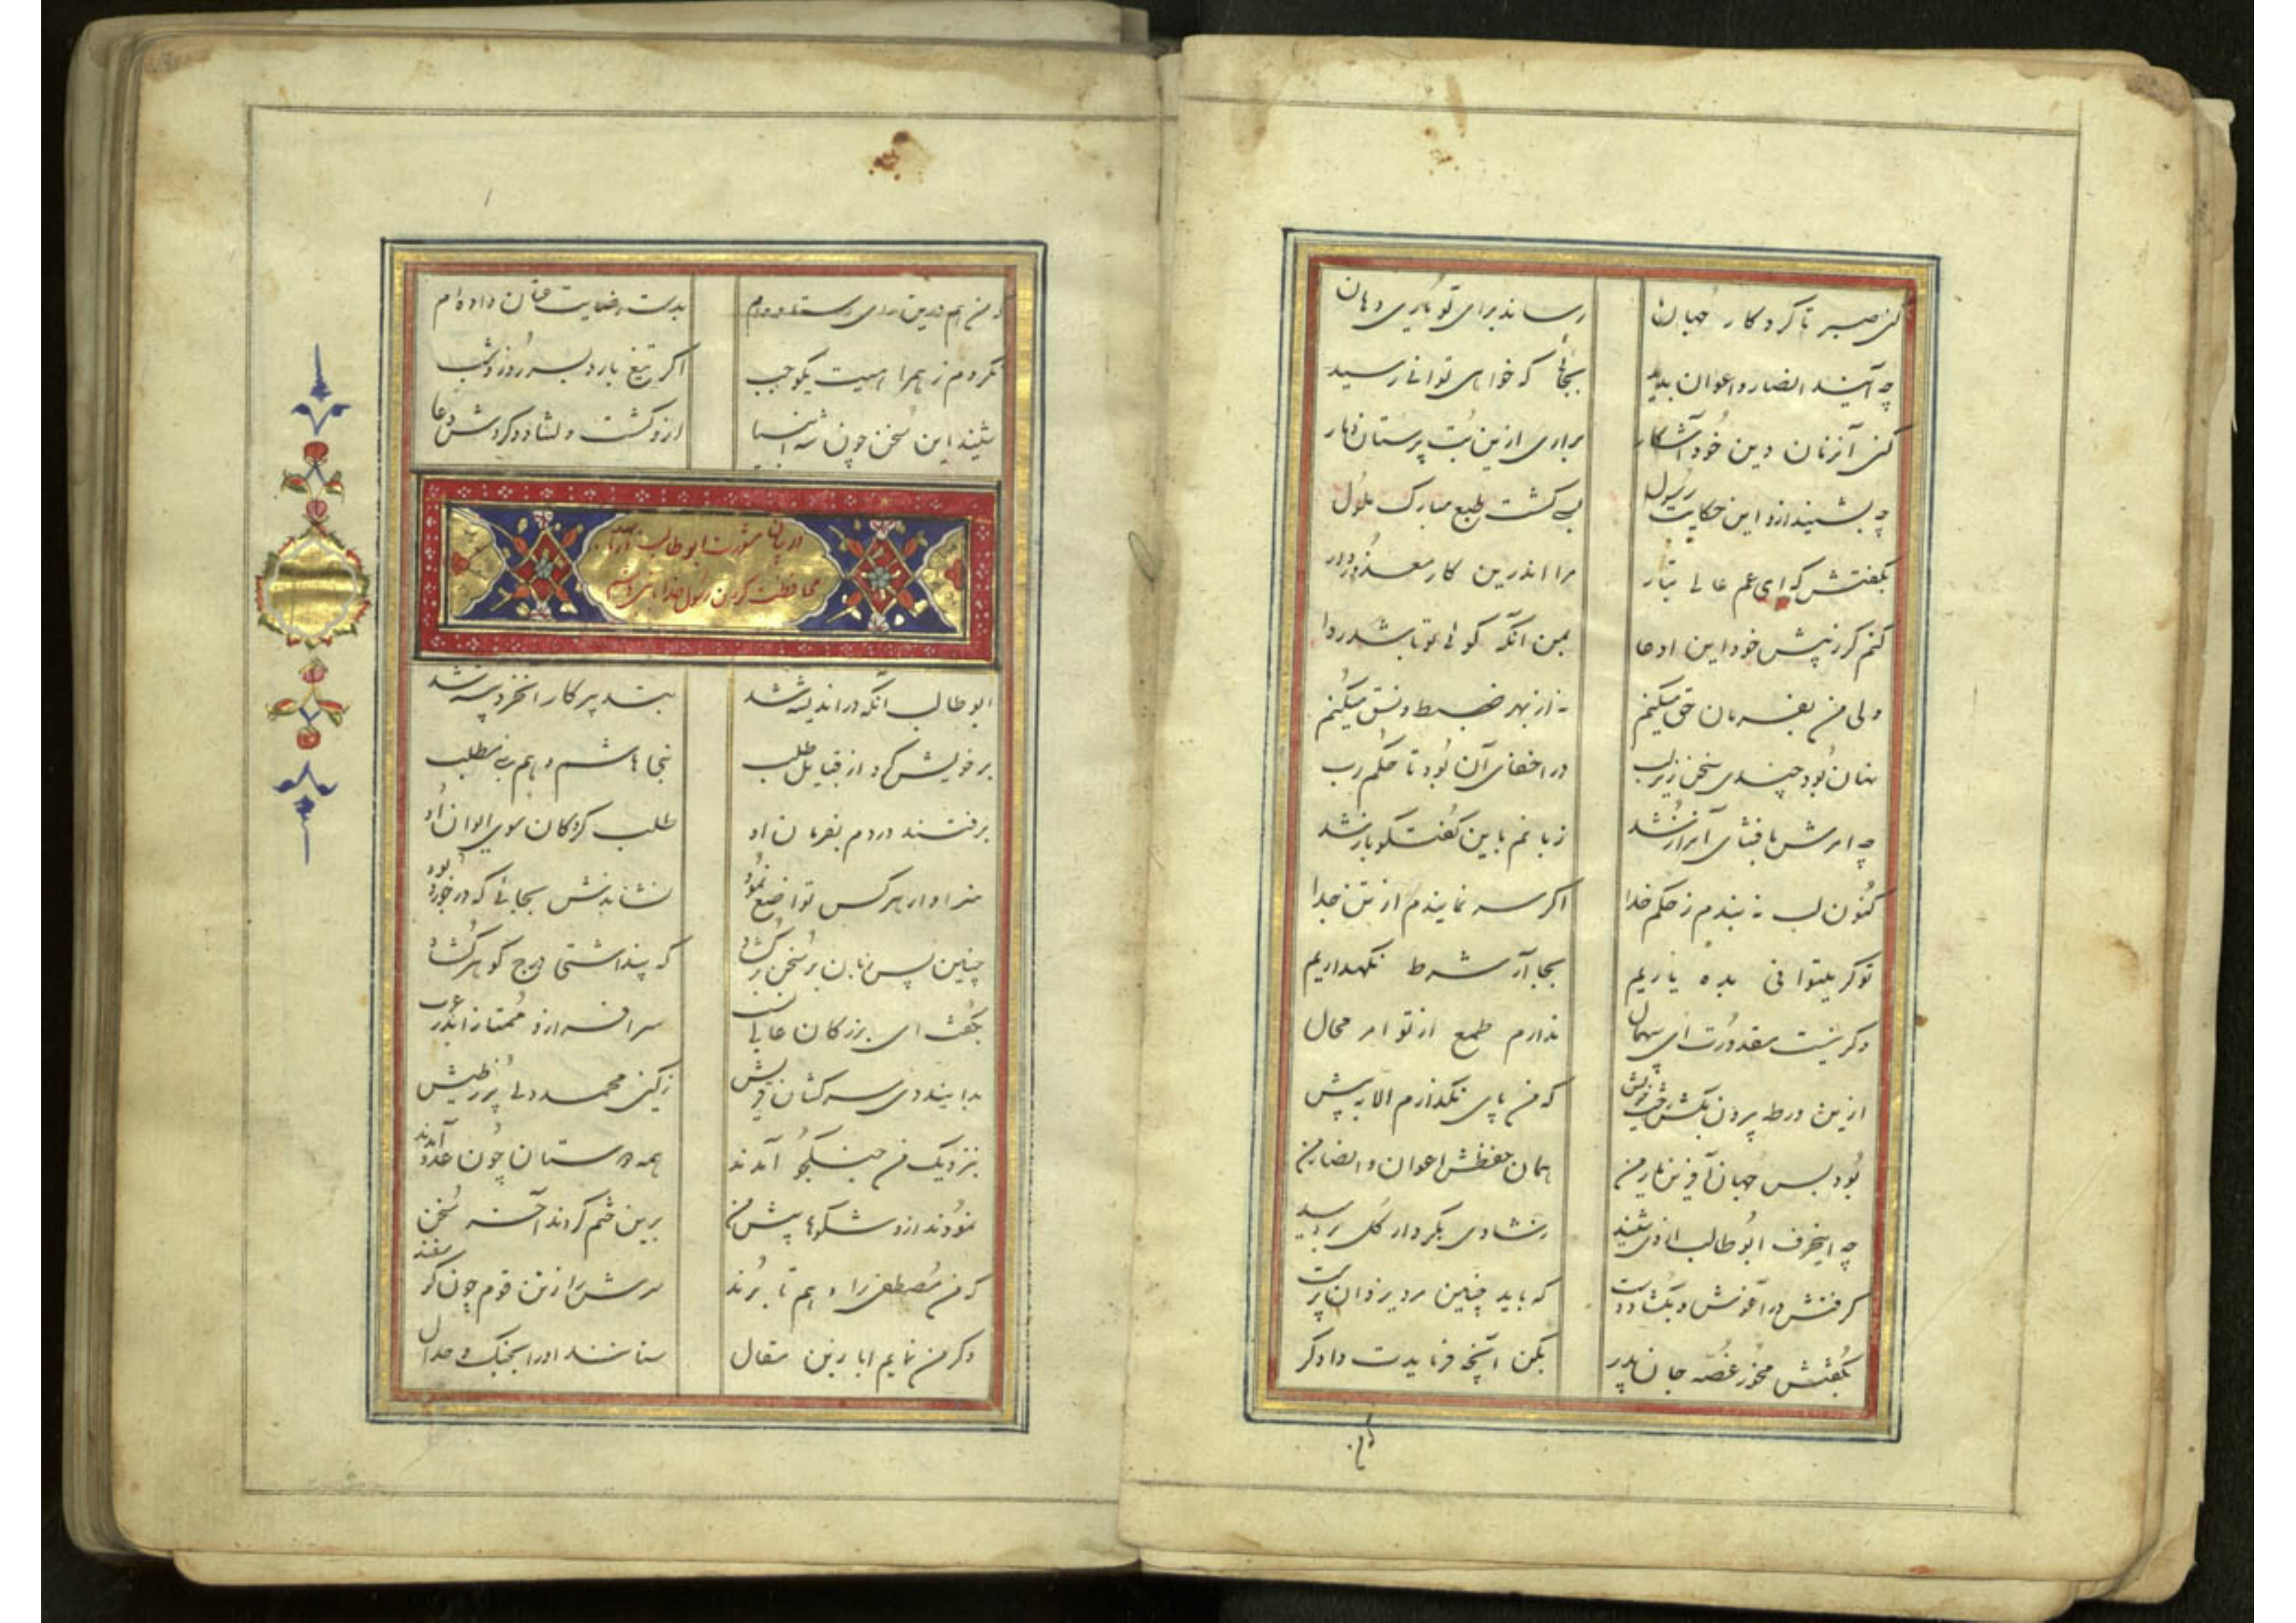 کنی صبر تا کردکار جهان رساند برای تو یاری دهان
چه آیند انصار و اعوان پدید بجائی که خواهی توانی رسید
کنی آنزمان دین خود آشکار براری ازین بت پرستان دمار
چه بشنید ازو این حکایت رسول بسی کشت طبع مبارک ملول
بکفتش که ای عم عالی تبار مرا اندرین کار معذور دار
کنم کر ز پیش خود این ادعا بمن آنکه کوئی تو باشد روا
ولی من بفرمان حق میکنم نه از بهر ضبط و نسق میکنم
نهان بود چندی سخن زیر لب در اخفای آن بود تا حکم رب
چه امرش بافشای آنراز شد زبانم باین کفتکو باز شد
کنون لب نه بندم ز حکم خدا اکر سر نمایندم از تن جدا
تو کر میتوانی بده یاریم بجا آر شرط نکهداریم
وکر نیست مقدورت ای ندارم طمع از تو امر محال
ازین ورطه بیرون بکش رخت خویش که من پای نکذارم الا به پیش
بود بس جهان آفرین یار من همان حفظش اعوان و انصار من
چه اینحرف ابوطالب از وی شنید ز شادی بکردار کل بر دمید
کرفتش در آغوش و بکشاد دست که باید چنین مرد یزدان پرست
بکفتش مخور غصه جان پدر بکن آنچه فرمایدت دادکر
که من
که من هم درین راه ستاده‌ام بدست رضایت عنان داده‌ام
نکردم ز همراهیت یکوجب اکر تیغ بارد بسر روز و شب
شنید این سخن چون شه انبیا ازو کشت دلشاد و کردش دعا
در بیان مشورت ابو طالب در باب
محافظت کردن رسول خدا با بنی هاشم
ابو طالب آنکه در اندیشه شد به تدبیر کار از خرد پیشه شد
بر خویش کرد از قبایل طلب بنی هاشم و هم بنی مطلب
برفتند در دم بفرمان او طلب کردکان سوی ایوان او
سزاوار هر کس تواضع نمود نشاندش بجائی که در خورد بود
چنین پس زبان بر سخن بر کشاد که پنداشتی درج کوهر کشاد
بکفت ای بزرکان عالی نسب سرافراز و ممتاز اندر عرب
بدانید دی سرکشان قریش ز کین محمد دلی پر ز طیش
بنزدیک من جنکجو آمدند همه دوستان چون عدو آمدند
نمودند ازو شکوها پیش من برین ختم کردند آخر سخن
که من مصطفی را دهم تا برند سرش را ز تن قوم چون کوسفند
وکر من نمایم ابا زین مقال ستانند او را بجنک و جدال